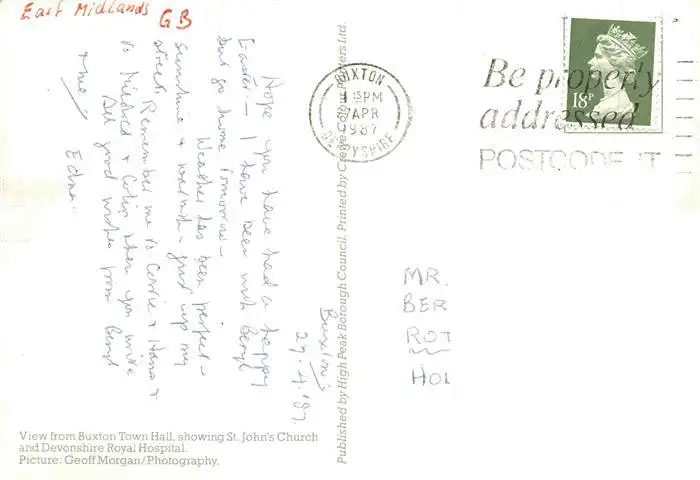 East Midlands GB
BUXTON
PM
7 APR
1987
DERBYSHIRE
Be properly
addressed
POSTCODE IT
18P
Buxton.
27.4.'87.
Hope you have had a happy
Easter – I have been with Beryl
but go home tomorrow –
Weather has been perfect –
sunshine & warmth – just up my
street. Remember me to Corrie & Hans &
to Mildred & Colin when you write
All good wishes from Beryl
& me
Edna.
Published by High Peak Borough Council. Printed by Crewe Colour Printers Ltd.
MR.
BER
ROT
HOL
View from Buxton Town Hall, showing St. John's Church
and Devonshire Royal Hospital.
Picture: Geoff Morgan/Photography.